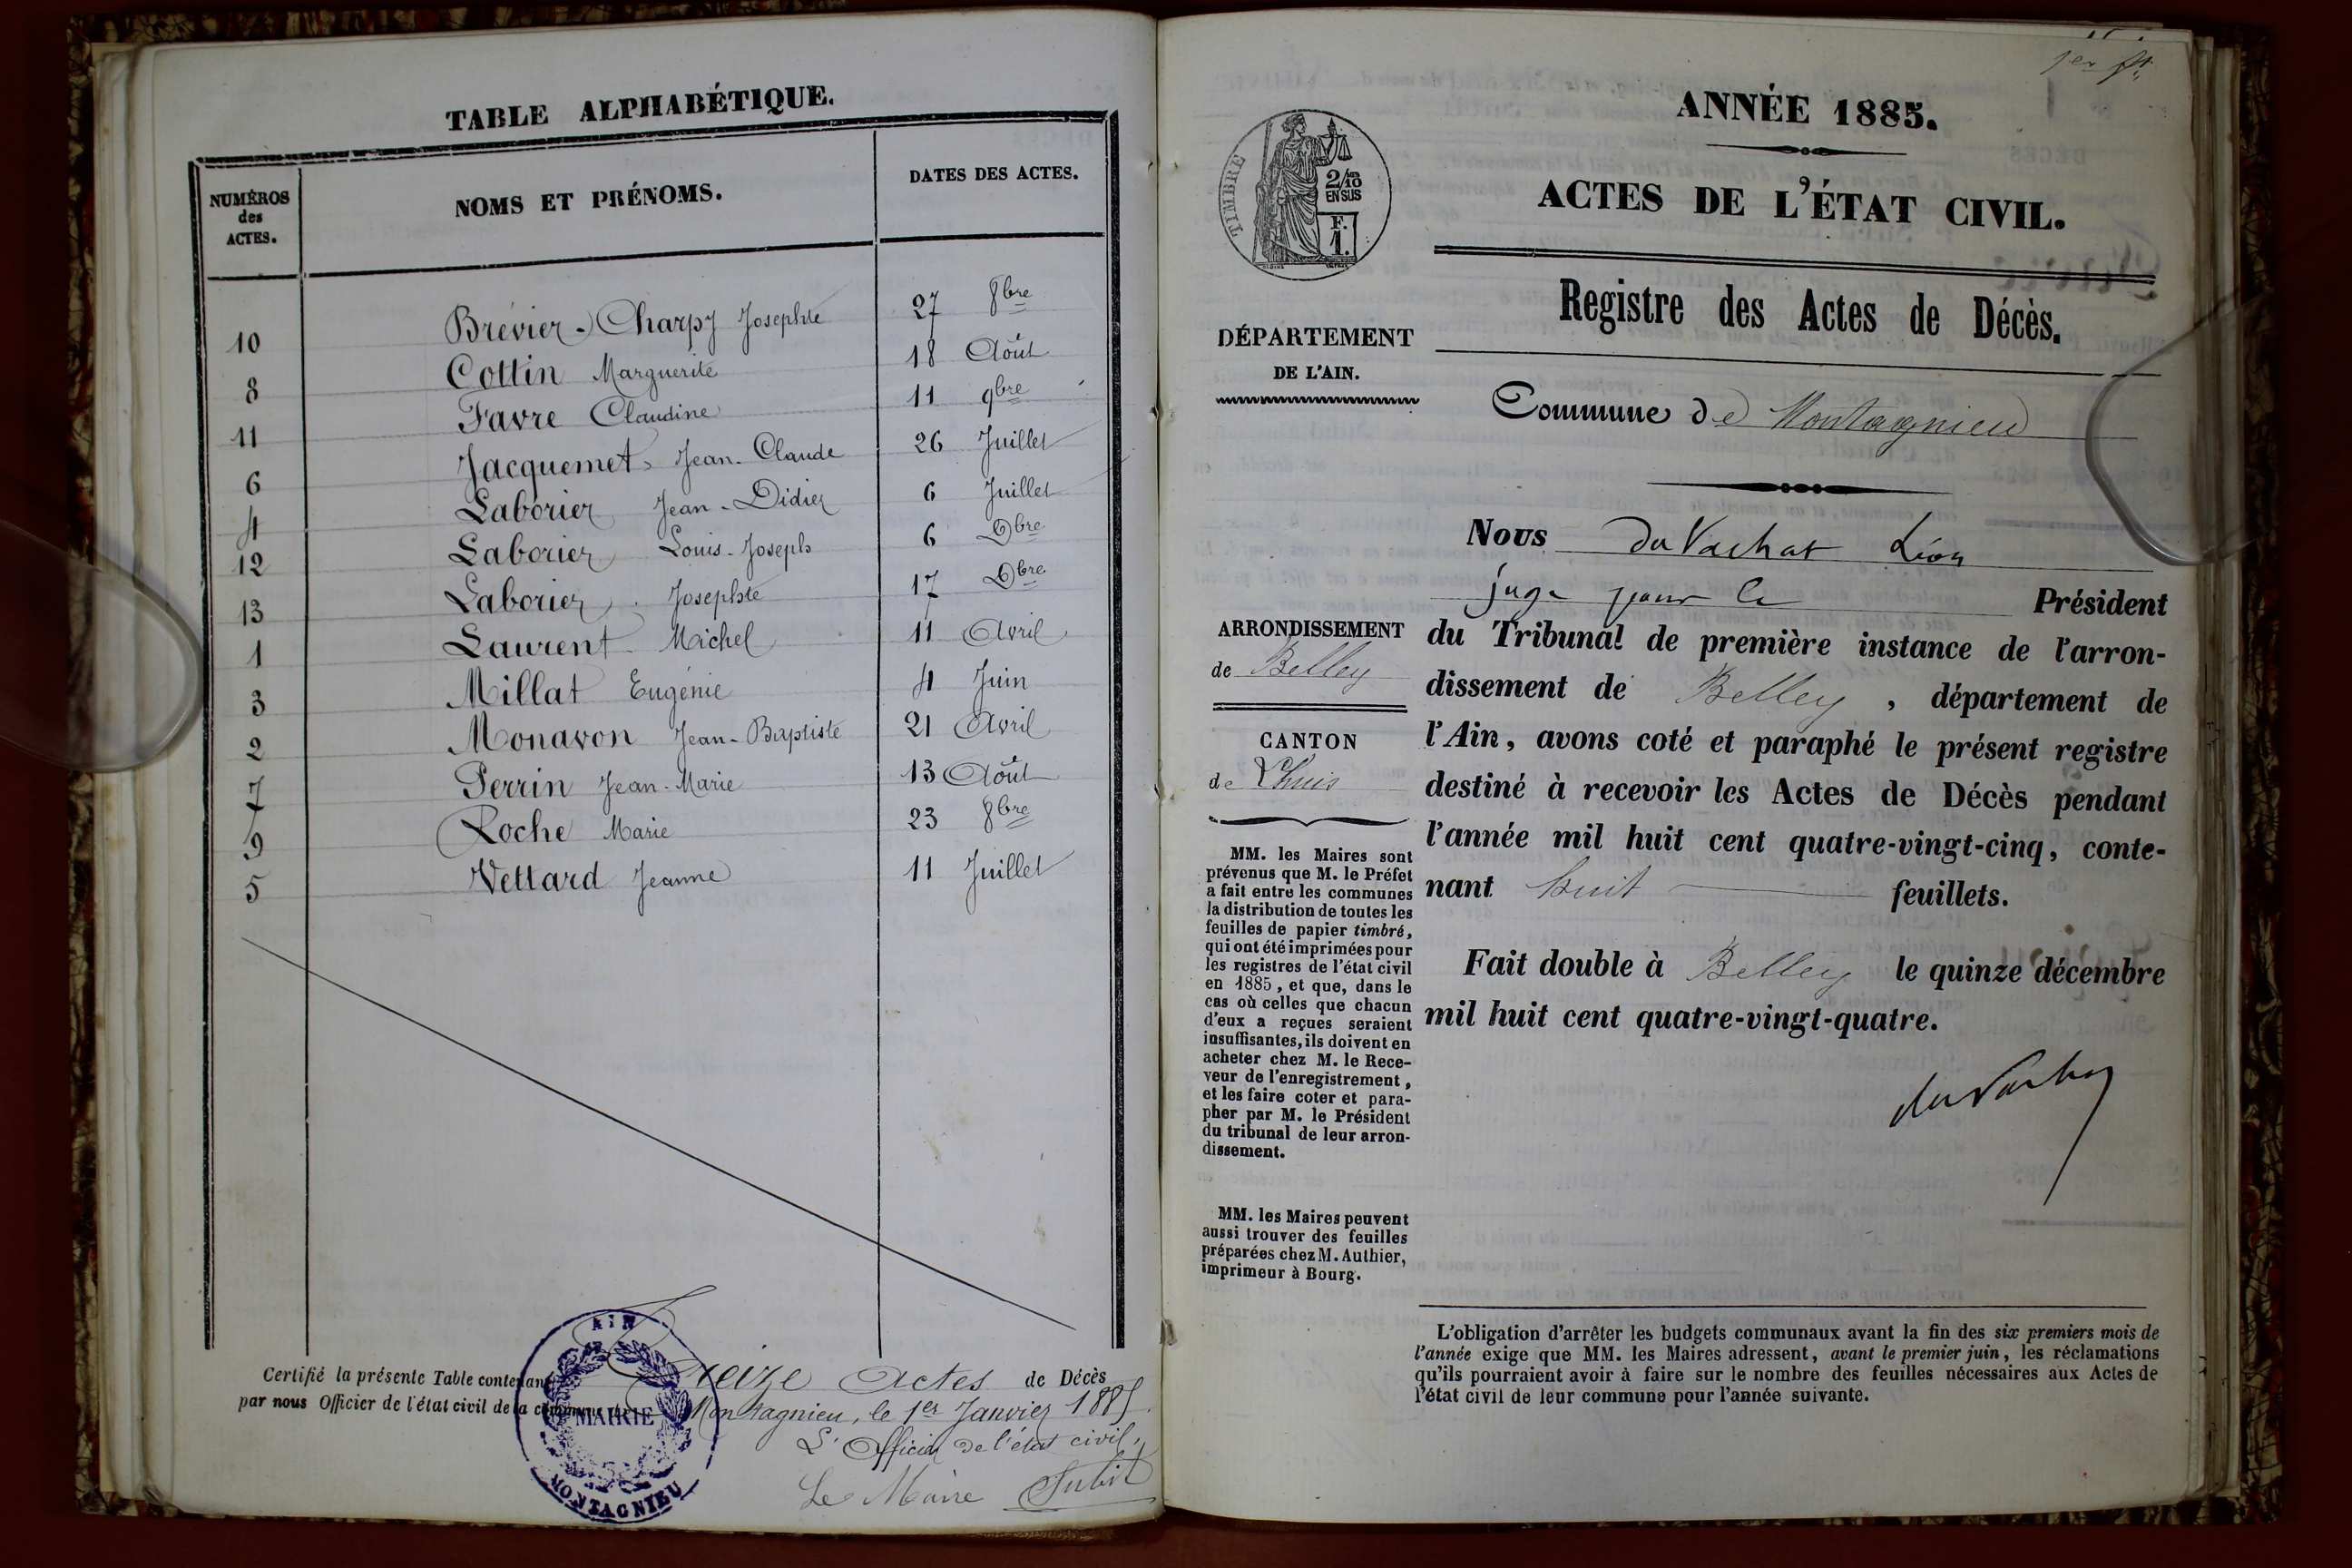 TABLE ALPHABÉTIQUE.
NUMÉROS
des
ACTES.
NOMS ET PRÉNOMS.
DATES DES ACTES.
10 Brévier-Charpy Josephte 27 8bre
8 Cottin Marguerite 18 Août
11 Favre Claudine 11 9bre
6 Jacquemet Jean-Claude 26 Juillet
4 Laborier Jean-Didier 6 Juillet
12 Laborier Louis-Joseph 6 Dbre
13 Laborier Josephte 17 Dbre
1 Laurent Michel 11 Avril
3 Millat Eugénie 4 Juin
2 Monavon Jean-Baptiste 21 Avril
7 Perrin Jean-Marie 13 Août
9 Roche Marie 23 8bre
5 Vettard Jeanne 11 Juillet
Certifié la présente Table contenant Treize Actes de Décès
par nous Officier de l'état civil de la commune de Montagnieu, le 1er Janvier 1885.
L'Officier de l'état civil,
Le Maire
AIN
MAIRIE
MONTAGNIEU
1er
ANNÉE 1885.
ACTES DE L'ÉTAT CIVIL.
TIMBRE
2/10
EN SUS
F.
1.
Registre des Actes de Décès.
DÉPARTEMENT
DE L'AIN.
Commune de Montagnieu
ARRONDISSEMENT
de Belley
CANTON
de Lhuis
MM. les Maires sont
prévenus que M. le Préfet
a fait entre les communes
la distribution de toutes les
feuilles de papier timbré,
qui ont été imprimées pour
les registres de l'état civil
en 1885, et que, dans le
cas où celles que chacun
d'eux a reçues seraient
insuffisantes, ils doivent en
acheter chez M. le Rece-
veur de l'enregistrement,
et les faire coter et para-
pher par M. le Président
du tribunal de leur arron-
dissement.
MM. les Maires peuvent
aussi trouver des feuilles
préparées chez M. Authier,
imprimeur à Bourg.
Nous du Vachat Léon
juge pour le Président
du Tribunal de première instance de l'arron-
dissement de Belley, département de
l'Ain, avons coté et paraphé le présent registre
destiné à recevoir les Actes de Décès pendant
l'année mil huit cent quatre-vingt-cinq, conte-
nant huit feuillets.
Fait double à Belley le quinze décembre
mil huit cent quatre-vingt-quatre.
du Vachat
L'obligation d'arrêter les budgets communaux avant la fin des six premiers mois de
l'année exige que MM. les Maires adressent, avant le premier juin, les réclamations
qu'ils pourraient avoir à faire sur le nombre des feuilles nécessaires aux Actes de
l'état civil de leur commune pour l'année suivante.